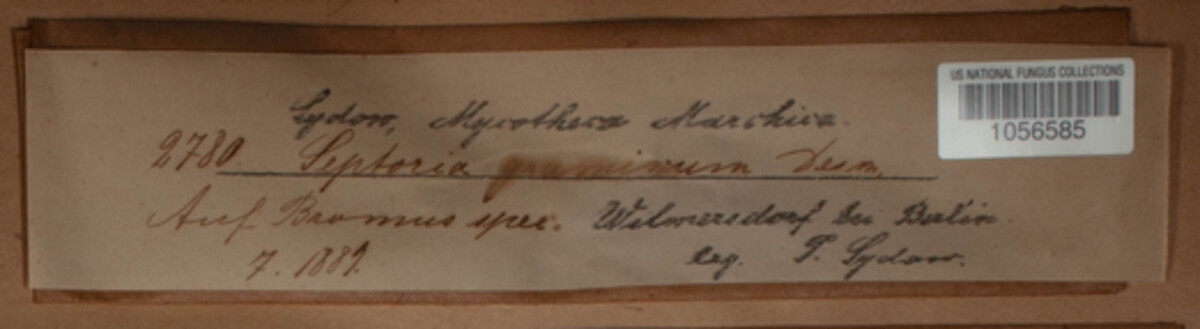 Sydow, Mycotheca Marchica.
2780. Septoria graminum Desm.
Auf Bromus spec. Wilmersdorf bei Berlin.
7. 1889. leg. P. Sydow.
US NATIONAL FUNGUS COLLECTIONS
1056585